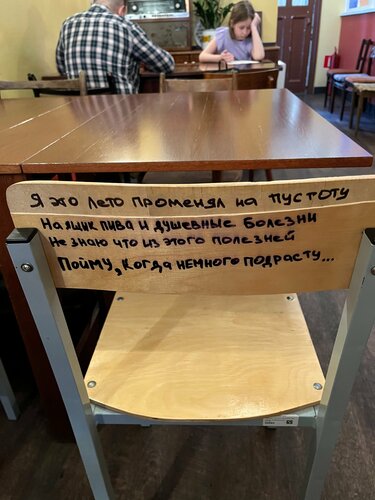 Я это лето променял на пустоту
На ящик пива и душевные болезни
Не знаю что из этого полезней
Пойму, когда немного подрасту...